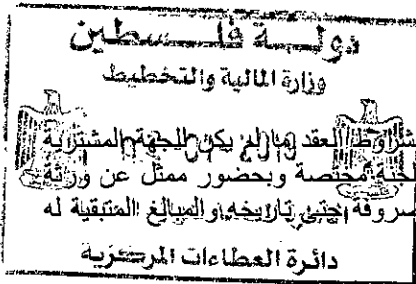 دولة فلسطين
وزارة المالية والتخطيط
العقد ما لم يكن للجهة المشترية
لجنة مختصة وبحضور ممثل عن ورثة
حتى تاريخه والمبالغ المتبقية له
دائرة العطاءات المركزية